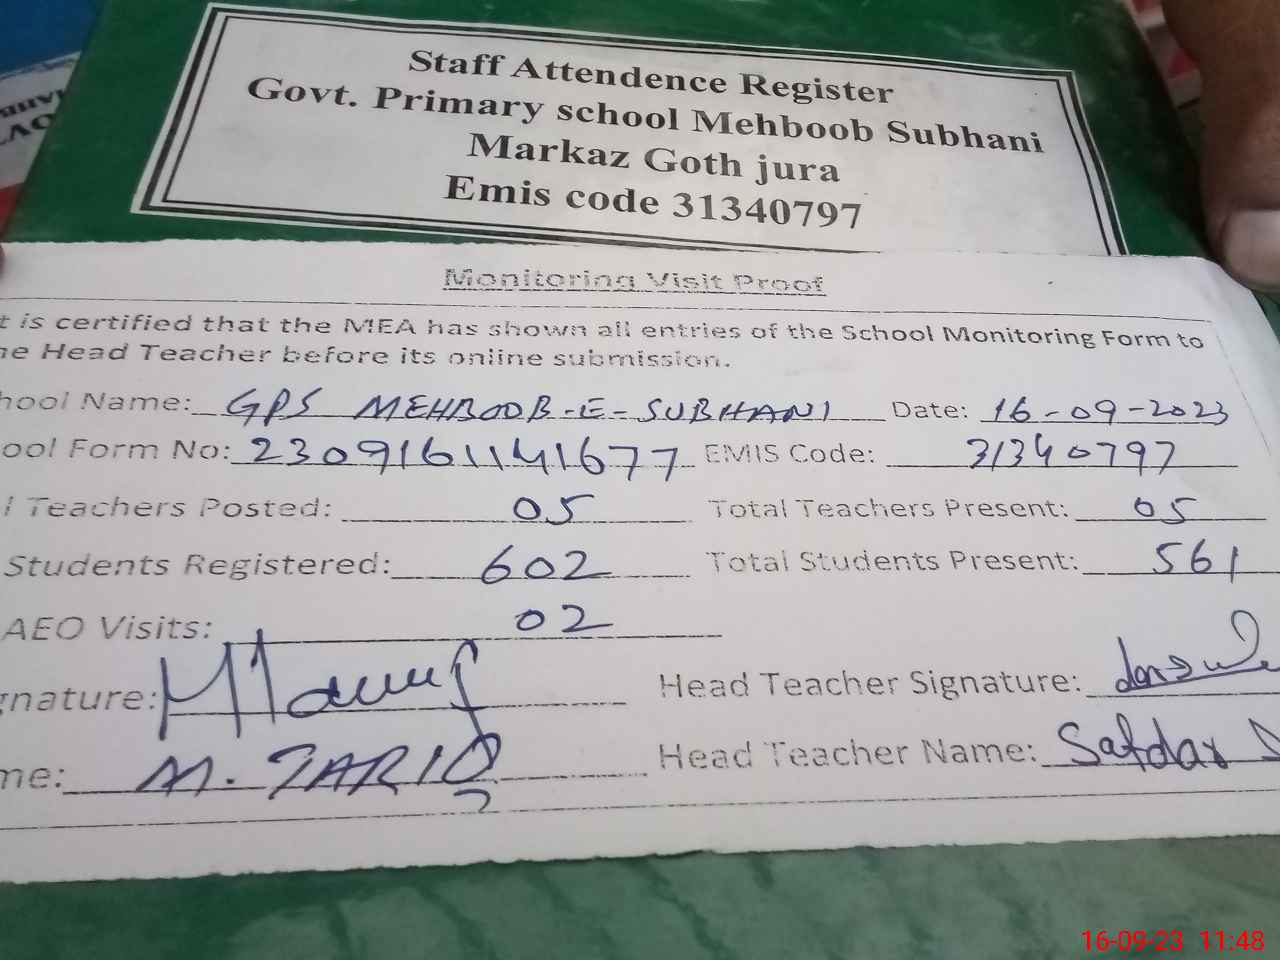 Staff Attendence Register
Govt. Primary school Mehboob Subhani
Markaz Goth jura
Emis code 31340797
Monitoring Visit Proof
t is certified that the MEA has shown all entries of the School Monitoring Form to
he Head Teacher before its online submission.
hool Name: GPS MEHBOOB-E-SUBHANI Date: 16-09-2023
ool Form No: 2309161141677 EMIS Code: 31340797
l Teachers Posted: 05 Total Teachers Present: 05
Students Registered: 602 Total Students Present: 561
AEO Visits: 02
gnature: Head Teacher Signature:
me: M. TARIQ Head Teacher Name: Safdar
16-09-23 11:48